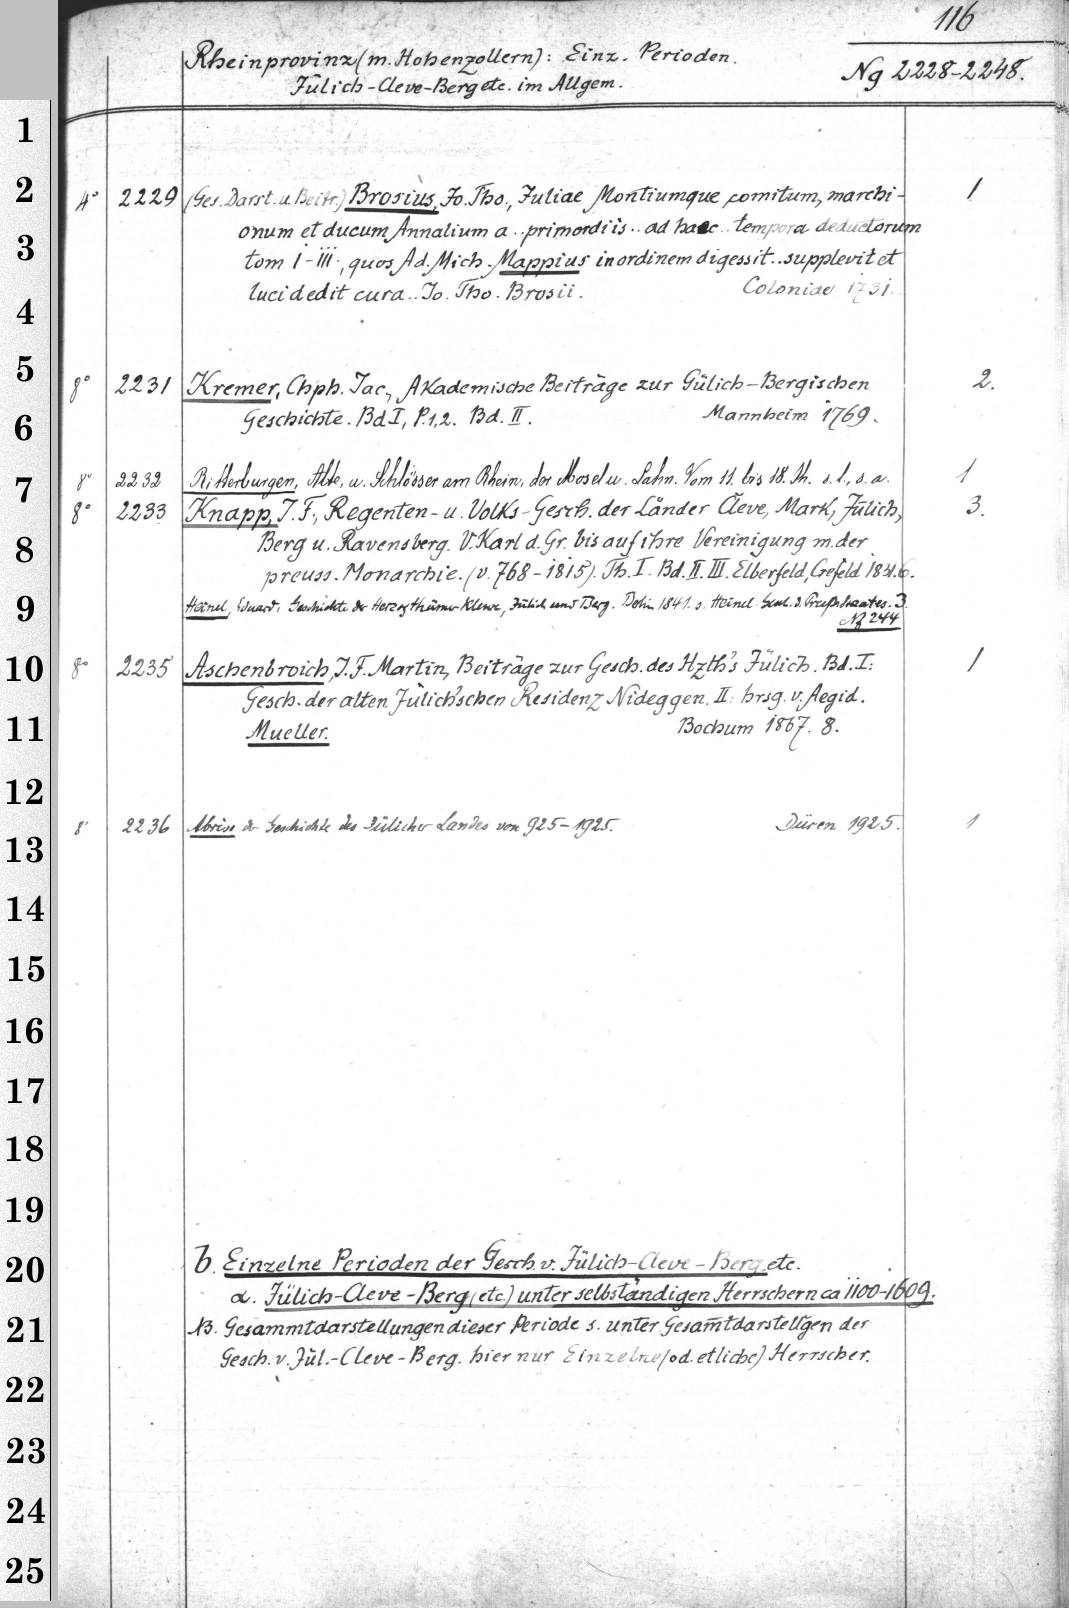 116
Rheinprovinz (m. Hohenzollern): Einz. Perioden.
Jülich-Cleve-Berg etc. im Allgem.
Ng 2228-2248.
1
2
4° 2229 (Ges. Darst. u. Beitr.) Brosius, Jo. Tho., Juliae Montiumque comitum, marchi- 1
onum et ducum Annalium a .. primordiis .. ad haec .. tempora deductorum
3
tom I-III., quos Ad. Mich. Mappius in ordinem digessit .. supplevit et
luci dedit cura .. Jo. Tho. Brosii. Coloniae 1731.
4
5
8° 2231 Kremer, Chph. Jac., Akademische Beiträge zur Gülich-Bergischen 2.
6
Geschichte. Bd I, P. 1, 2. Bd. II. Mannheim 1769.
7
8° 2232 Ritterburgen, Alte, u. Schlösser am Rhein, der Mosel u. Lahn. Vom 11. bis 18. Jh. s. l., s. a. 1
8° 2233 Knapp, J. F., Regenten- u. Volks-Gesch. der Länder Cleve, Mark, Jülich, 3.
8
Berg u. Ravensberg. V. Karl d. Gr. bis auf ihre Vereinigung m. der
preuss. Monarchie. (v. 768-1815). Th. I. Bd. II. III. Elberfeld, Crefeld 1831.6.
9
Heinel, Eduard: Geschichte der Herzogthümer Kleve, Jülich und Berg. Berlin 1841. s. Heinel. Gesch. d. Preuß. Staates. 3.
Nf 244
10
8° 2235 Aschenbroich, J. F. Martin, Beiträge zur Gesch. des Hzth's Jülich. Bd. I: 1
Gesch. der alten Jülich'schen Residenz Nideggen. II: hrsg. v. Aegid.
11
Mueller. Bochum 1867. 8.
12
8° 2236 Abriss der Geschichte des Jülicher Landes von 925-1925. Düren 1925. 1
13
14
15
16
17
18
19
20
b. Einzelne Perioden der Gesch. v. Jülich-Cleve-Berg etc.
α. Jülich-Cleve-Berg (etc.) unter selbständigen Herrschern ca 1100-1609.
21
NB. Gesammtdarstellungen dieser Periode s. unter Gesamtdarstell'gen der
Gesch. v. Jül.-Cleve-Berg. hier nur Einzelne (od. etliche) Herrscher.
22
23
24
25